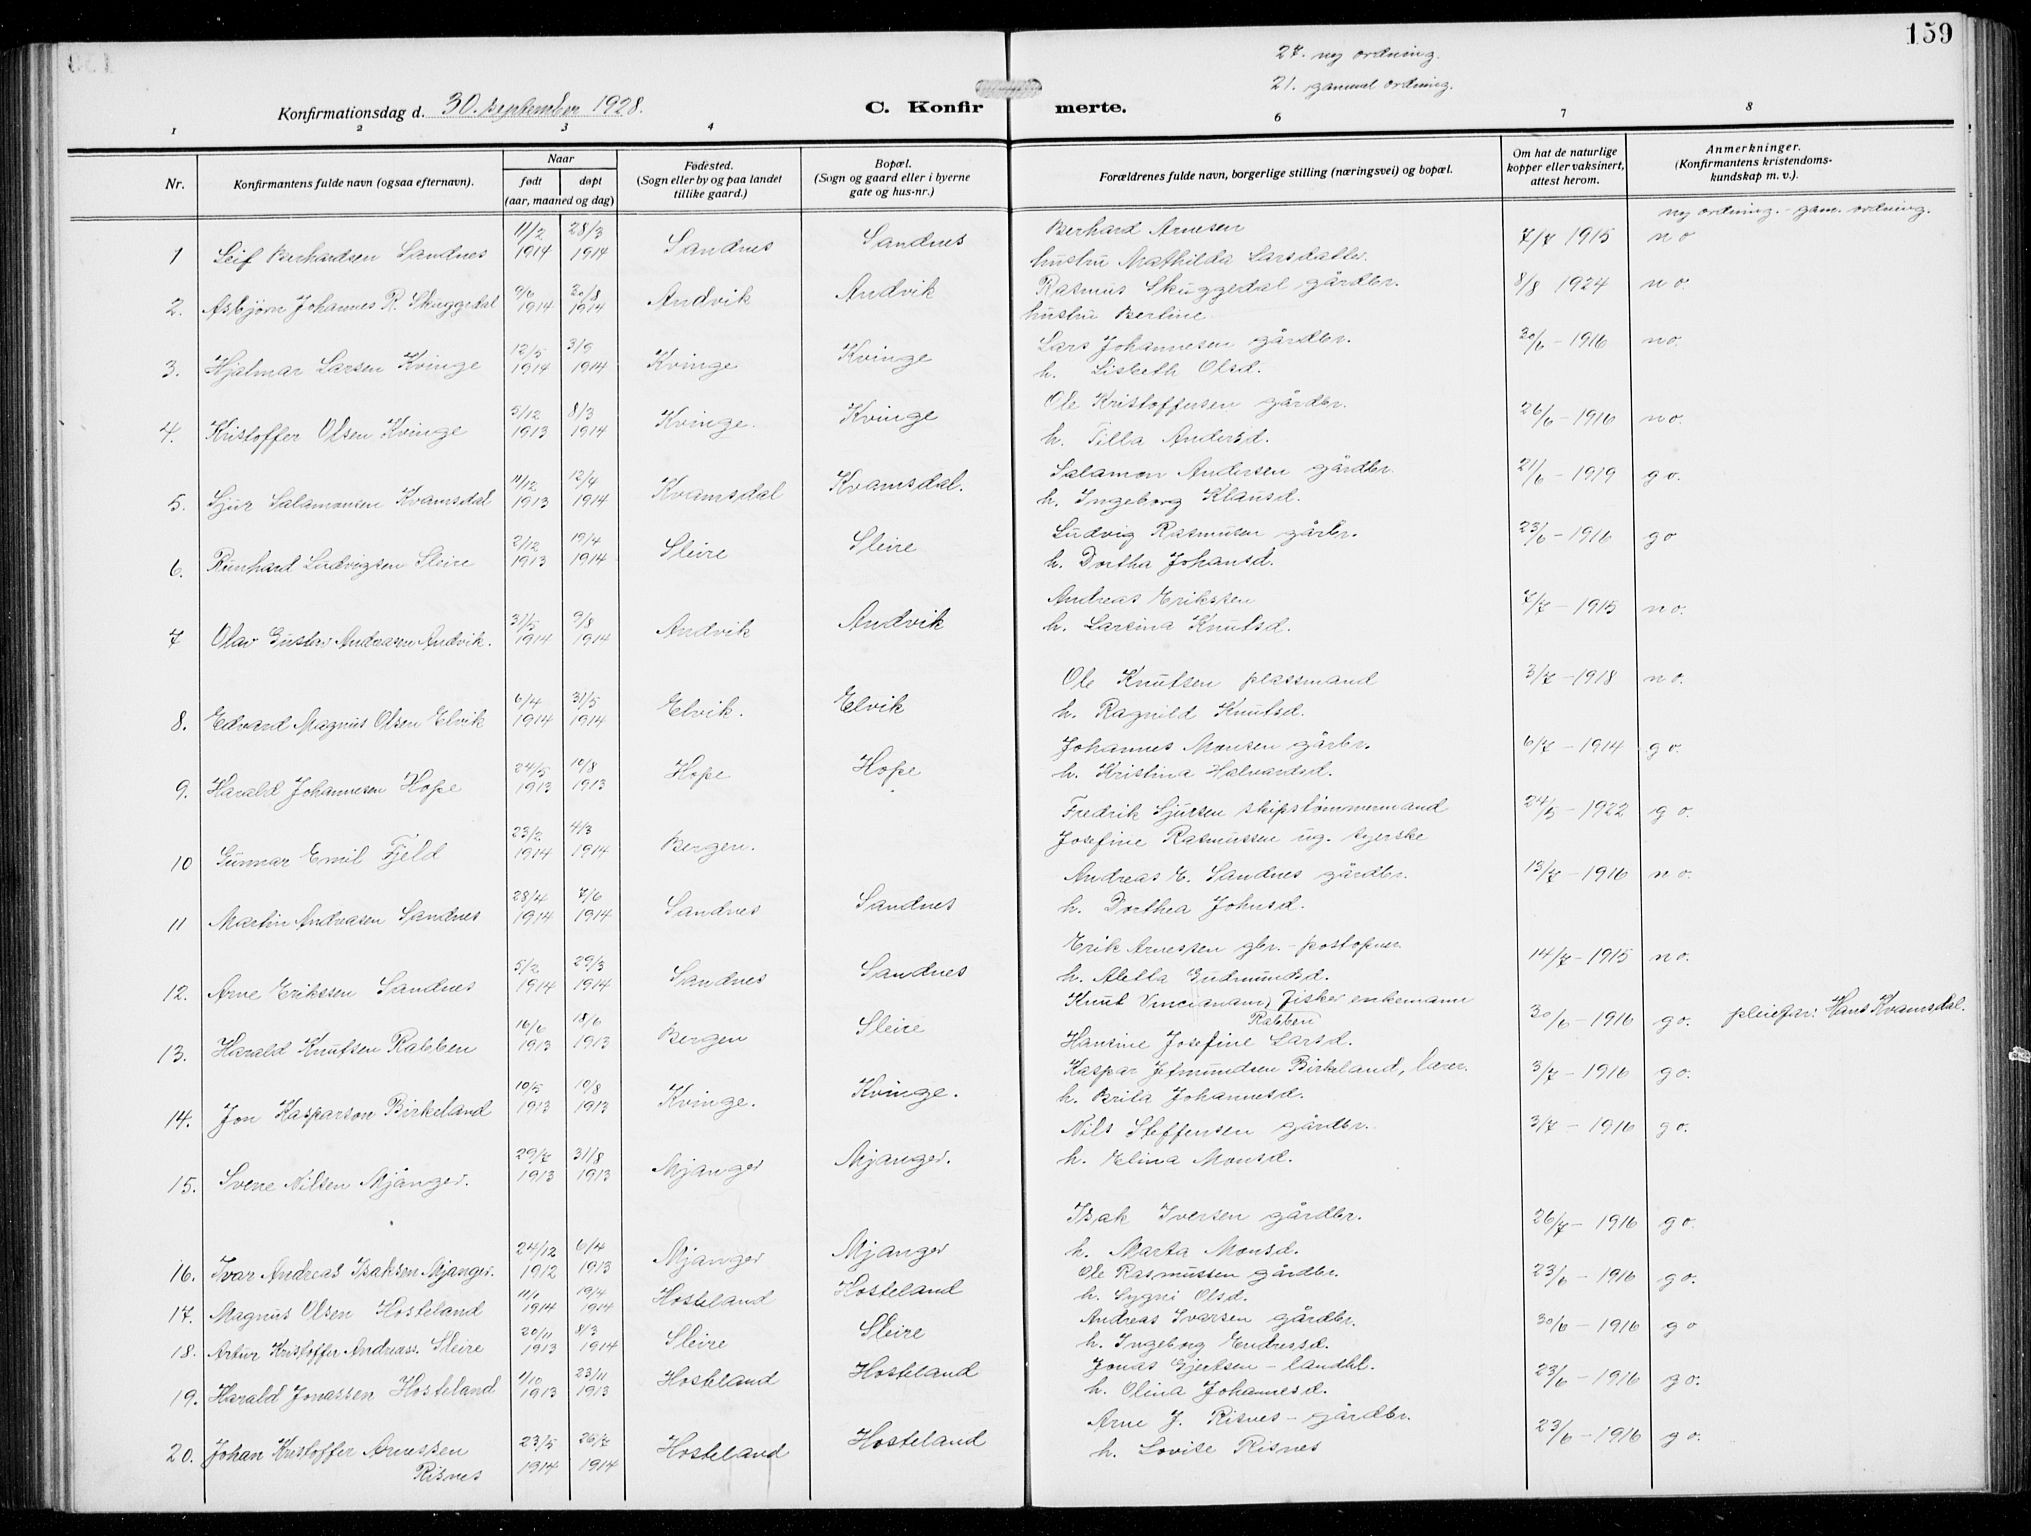 159
27. ny ordning.
21. gammal ordning.
Konfirmationsdag d. 30. september 1928.
C. Konfirmerte.
1 2 3 4 6 7 8
Nr.
Konfirmantens fulde navn (ogsaa efternavn).
Naar
født døpt
(aar, maaned og dag)
Fødested.
(Sogn eller by og paa landet
tillike gaard.)
Bopæl.
(Sogn og gaard eller i byerne
gate og hus-nr.)
Forældrenes fulde navn, borgerlige stilling (næringsvei) og bopæl.
Om hat de naturlige
kopper eller vaksinert,
attest herom.
Anmerkninger.
(Konfirmantens kristendoms-
kundskap m. v.).
ny ordning. - gam. ordning.
1 Leif Berhardsen Sandnes 11/2 1914 28/3 1914 Sandnes Sandnes Berhard Arnesen 7/7 1915 n o
hustru Mathilda Larsdatter
2. Asbjørn Johannes R. Skuggedal 9/6 1914 20/8 1914 Andvik Andvik Rasmus Skuggedal gårdbr. 8/8 1924 n o.
hustru Berline
3. Hjalmar Larsen Kvinge 12/5 1914 3/9 1914 Kvinge Kvinge Lars Johannesen gårdbr. 30/6 - 1916 n o.
h. Lisbeth Olsd.
4. Kristoffer Olsen Kvinge 5/12 1913 8/3 1914 Kvinge. Kvinge Ole Kristoffersen gårdbr. 26/6 - 1916 n o.
h. Tilla Andersd.
5. Sjur Salamonsen Kvamsdal 11/12 1913 12/4 1914 Kvamsdal Kvamsdal. Salamon Andersen gårdbr. 21/6 - 1919 g o.
h. Ingeborg Klausd.
6. Reinhard Ludvigsen Sleire 2/12 1913 19/4 1914 Sleire Sleire Ludvig Rasmusen gårbr. 23/6 - 1916 g o
h. Dortha Johansd.
7 Olav Gustav Andreasen Andvik. 31/5 1914 9/8 1914 Andvik Andvik Andreas Eriksen 7/7 - 1915 n o.
h. Larsina Knutsd.
8. Edvard Magnus Olsen Elvik 6/4 1914 31/5 1914 Elvik. Elvik Ole Knutsen plassmand 3/7 - 1918 n o.
h. Ragnild Knutsd.
9. Harald Johannesen Hope 24/5 1913 10/8 1913 Hope Hope Johannes Monsen gårbr. 6/7 - 1914 g o.
h. Kristina Halvardsd.
10 Gunnar Emil Fjeld 23/2 1914 4/3 1914 Bergen. Fredrik Sjursen skipstømmermand 24/5 - 1922 g o.
Josefine Rasmussen ug. syerske
11 Martin Andreasen Sandnes 28/4 1914 7/6 1914 Sandnes Sandnes Andreas E. Sandnes gårdbr. 13/7 - 1916 n o.
h. Dorthea Johnsd.
12. Arne Erikssen Sandnes 5/2 1914 29/3 1914 Sandnes Sandnes Erik Arnessen gbr. - postopner. 14/7 - 1915 n o.
h. Aletta Gudmundsd.
13. Harald Knutsen Rabben 16/6 1913 18/6 1913 Bergen Sleire Knut Rabben fisker enkemann 30/6 - 1916 g o. pleiefar: Hans Kvamsdal.
Hansine Josefine Larsd.
14. Jon Kasparson Birkeland 10/5 1913 10/8 1913 Kvinge. Kvinge. Kaspar Jetmundsen Birkeland, lærer. 3/7 - 1916 g o.
h. Brita Johannesd.
15. Svere Nilsen Mjånger. 29/7 1913 31/8 1913 Mjanger Mjanger. Nils Steffensen gårdbr. 3/7 - 1916 g o.
h. Elina Monsd.
16. Ivar Andreas Isaksen Mjanger. 24/12 1912 6/4 1913 Mjanger Mjanger Isak Iversen gårdbr. 26/7 - 1916 g o.
h. Marta Monsd.
17. Magnus Olsen Hosteland 11/1 1914 19/4 1914 Hosteland Hosteland Ole Rasmussen gårdbr. 23/6 - 1916 g o.
h. Sygni Olsd.
18. Artur Kristoffer Andreass. Sleire 20/11 1913 8/3 1914 Sleire Sleire Andreas Ivarsen gårdbr. 30/6 - 1916 g o
h. Ingeborg Endresd.
19. Harald Jonassen Hosteland 1/10 1913 23/11 1913 Hosteland Hosteland Jonas Gjertsen - landhl. 23/6 - 1916 g o.
h. Olina Johannesd.
20. Johan Kristoffer Arnessen Risnes 23/5 1914 26/7 1914 Hosteland Hosteland Arne J. Risnes - gårdbr. 23/6 - 1916 g o.
h. Lovise Risnes